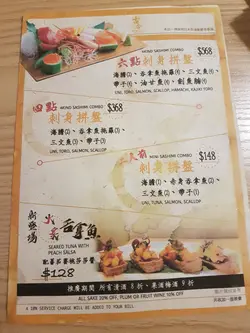 $568
六點刺身拼盤
MIXED SASHIMI COMBO
海膽(1)、吞拿魚拖羅(1)、三文魚(1)
帶子(1)、油甘魚(1)、劍魚腩(1)
UNI, TORO, SALMON, SCALLOP, HAMACHI, KAJIKI TORO
四點 MIXED SASHIMI COMBO $368
刺身拼盤
海膽(1)、吞拿魚拖羅(1)、
三文魚(1)、帶子(1)
UNI, TORO, SALMON, SCALLOP
$148
刺身拼盤
MIXED SASHIMI COMBO
海膽(1)、赤身吞拿魚(1)、
三文魚(2)、帶子(1)
UNI, TUNA, SALMON, SCALLOP
新登場
火炙吞拿魚
SEARED TUNA WITH
PEACH SALSA
配蕃茄蜜桃莎莎醬
$128
推廣期間 所有清酒 8 折，果酒梅酒 9 折
ALL SAKE 20% OFF, PLUM OR FRUIT WINE 10% OFF
圖片只供參考
另收加一服務費
A 10% SERVICE CHARGE WILL BE ADDED TO YOUR BILL.